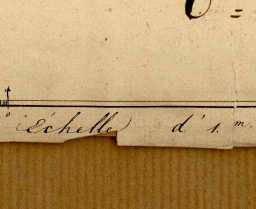 Échelle d' 1. m.